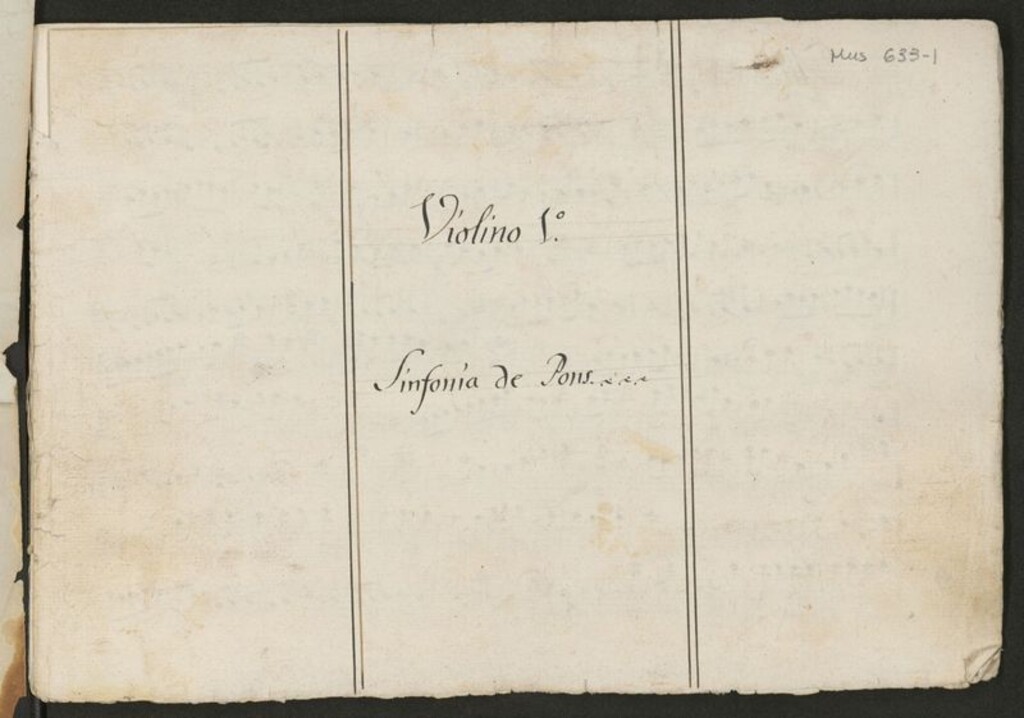 Mus 633-1
Violino 1.º
Sinfonia de Pons....